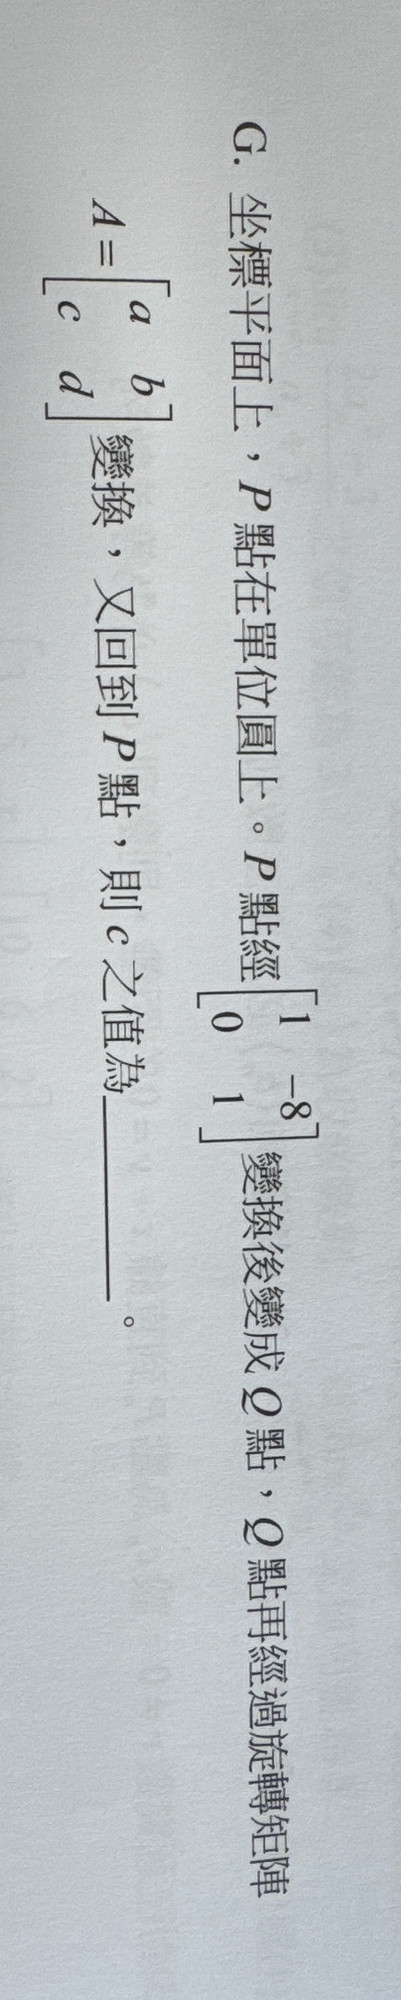 G. 坐標平面上，P 點在單位圓上。P 點經 [1 -8; 0 1] 變換後變成 Q 點，Q 點再經過旋轉矩陣
A = [a b; c d] 變換，又回到 P 點，則 c 之值為______。